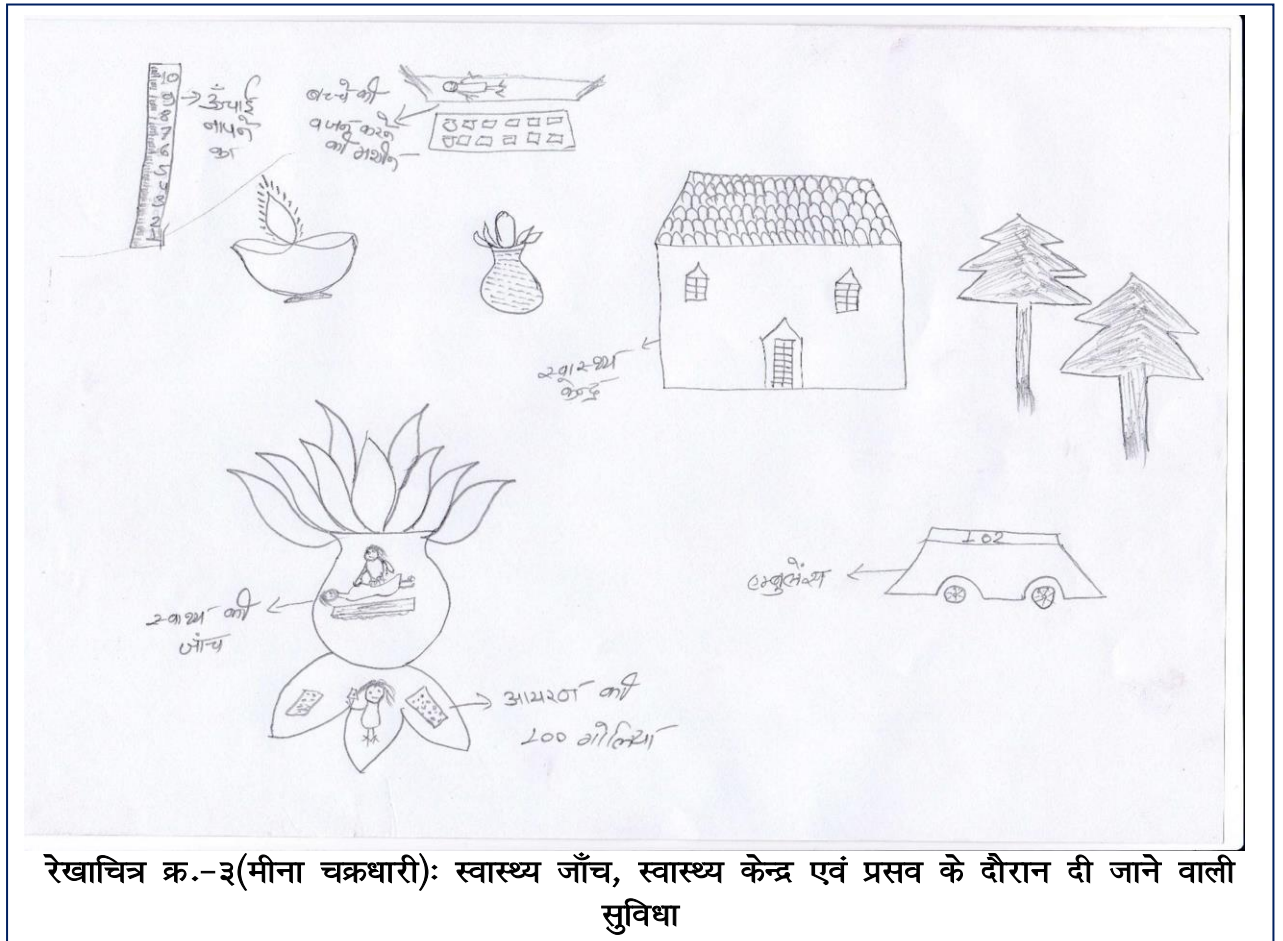 10
9
8
7
6
5
4
3
2
1
ऊँचाई
नापने
का
बच्चे की
वजन करने
की मशीन
स्वास्थ्य
केन्द्र
102
एम्बुलेंस
स्वाथ्य की
जांच
आयरन की
100 गोलियां
रेखाचित्र क्र.-३(मीना चक्रधारी): स्वास्थ्य जाँच, स्वास्थ्य केन्द्र एवं प्रसव के दौरान दी जाने वाली
सुविधा